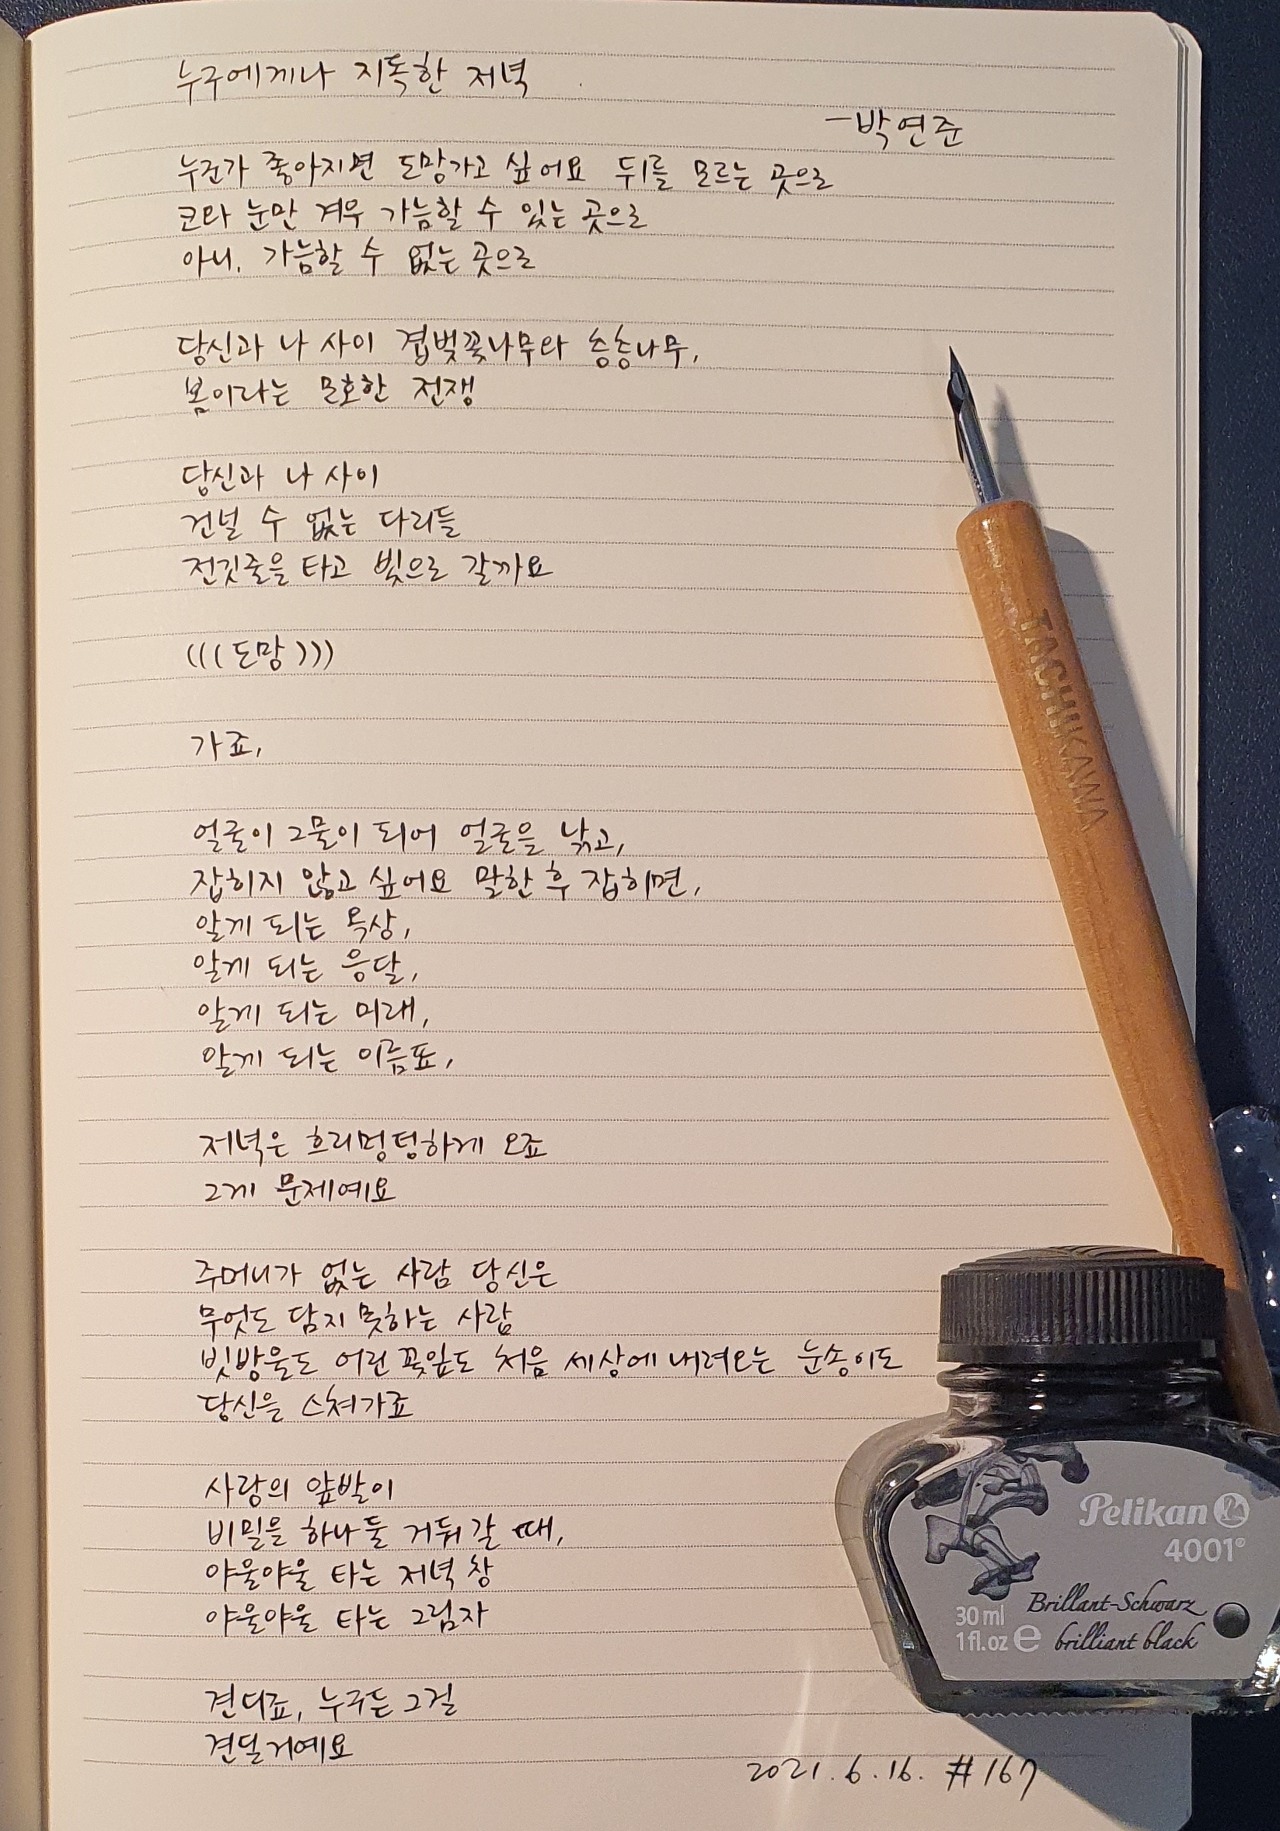 누구에게나 지독한 저녁
-박연준
누군가 좋아지면 도망가고 싶어요 뒤를 모르는 곳으로
코와 눈만 겨우 가늠할 수 있는 곳으로
아니, 가늠할 수 없는 곳으로
당신과 나 사이 겹벚꽃나무와 층층나무,
봄이라는 모호한 전쟁
당신과 나 사이
건널 수 없는 다리들
전깃줄을 타고 빛으로 갈까요
(((도망)))
가죠,
얼굴이 그물이 되어 얼굴을 낚고,
잡히지 않고 싶어요 말한 후 잡히면,
알게 되는 옥상,
알게 되는 응달,
알게 되는 미래,
알게 되는 이름표,
저녁은 흐리멍텅하게 오죠
그게 문제예요
주머니가 없는 사람 당신은
무엇도 담지 못하는 사람
빗방울도 어린 꽃잎도 처음 세상에 내려오는 눈송이도
당신을 스쳐가죠
사랑의 앞발이
비밀을 하나 둘 거둬 갈 때,
야울야울 타는 저녁 창
야울야울 타는 그림자
견디죠, 누구든 그걸
견딜거예요
2021.6.16. #167
TACHIKAWA
Pelikan
4001®
30 ml
1 fl.oz e
Brillant-Schwarz
brilliant black